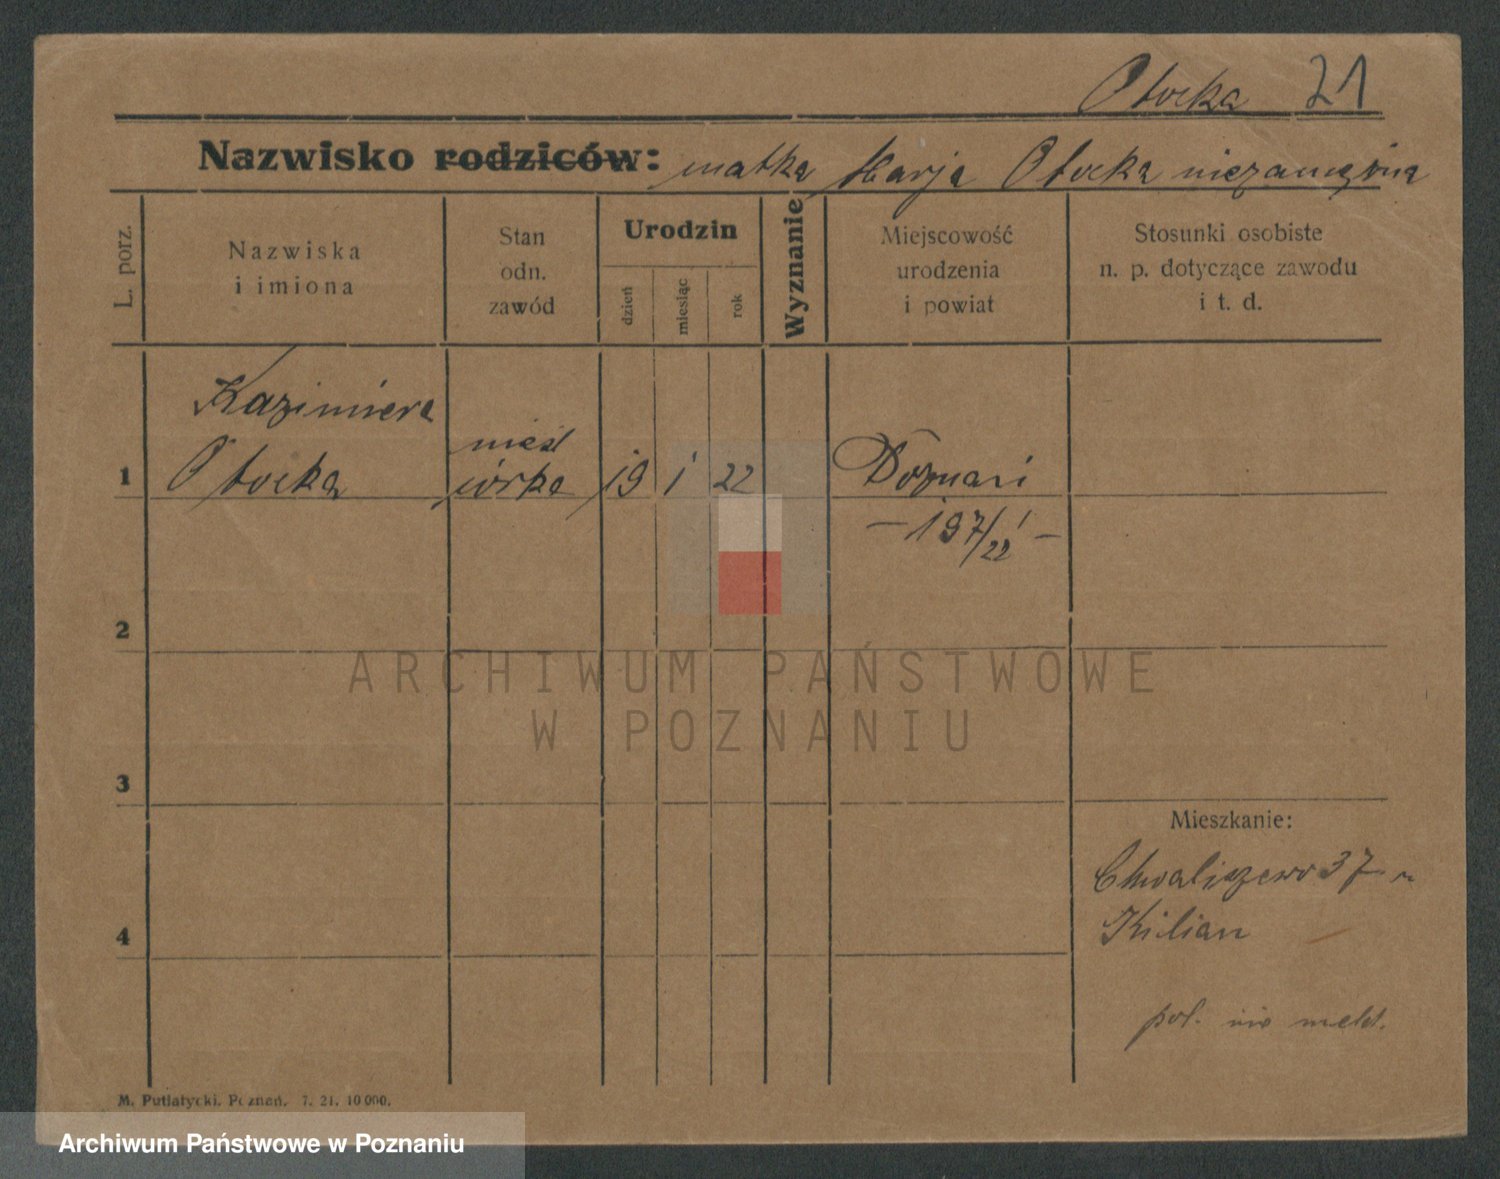 Otocka 21
Nazwisko rodziców: matka Marja Otocka niezamężna
L. porz.
Nazwiska
i imiona
Stan
odn.
zawód
Urodzin
dzień
miesiąc
rok
Wyznanie
Miejscowość
urodzenia
i powiat
Stosunki osobiste
n. p. dotyczące zawodu
i t. d.
Kazimiera
1 Otocka
nieśl
córka
19 1 22
Poznań
2
3
Mieszkanie:
Chwaliszewo 37
Kilian
4
pol. nie meld.
M. Putiatycki. Poznań. 7. 21. 10 000.
ARCHIWUM PAŃSTWOWE
W POZNANIU
Archiwum Państwowe w Poznaniu